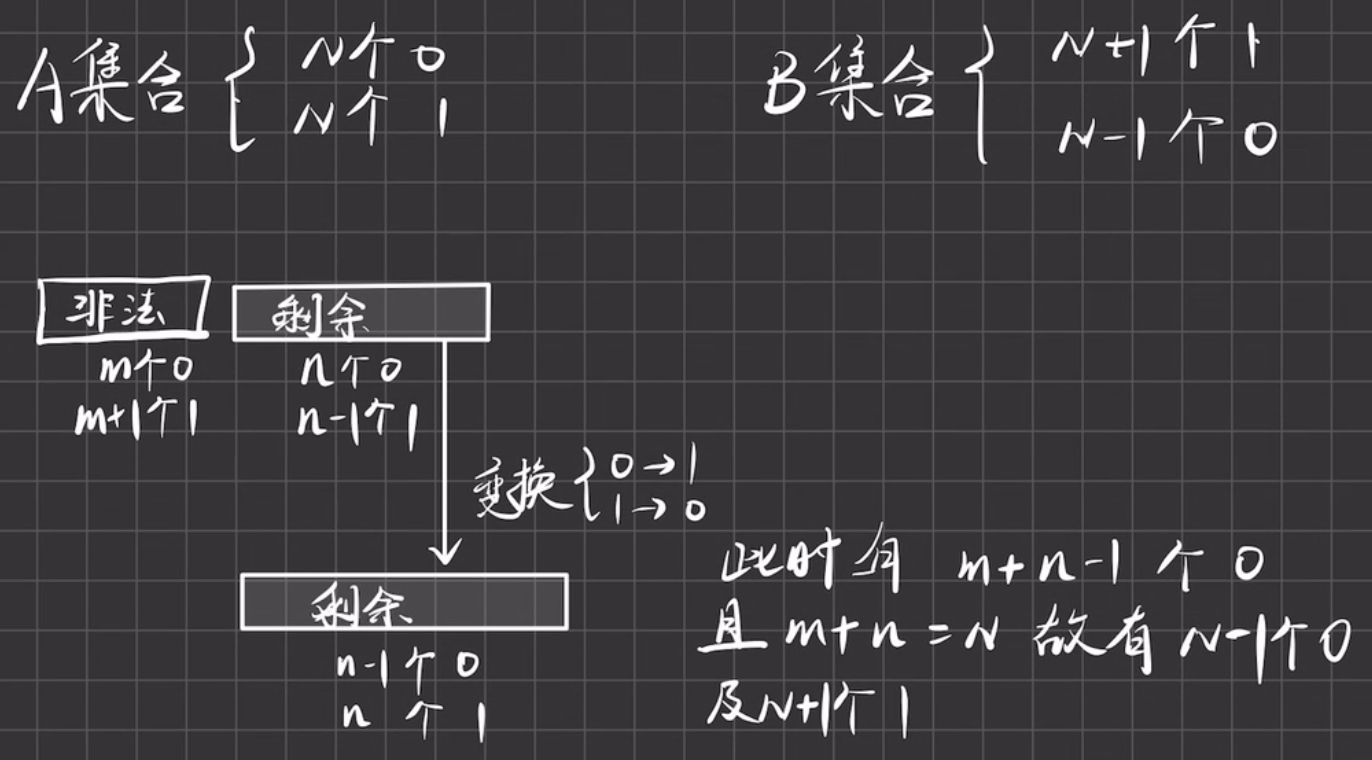 A集合 { N个0
N个1
B集合 { N+1个1
N-1个0
非法
m个0
m+1个1
剩余
n个0
n-1个1
变换 { 0→1
1→0
剩余
n-1个0
n个1
此时有 m+n-1个0
且 m+n=N 故有 N-1个0
及N+1个1